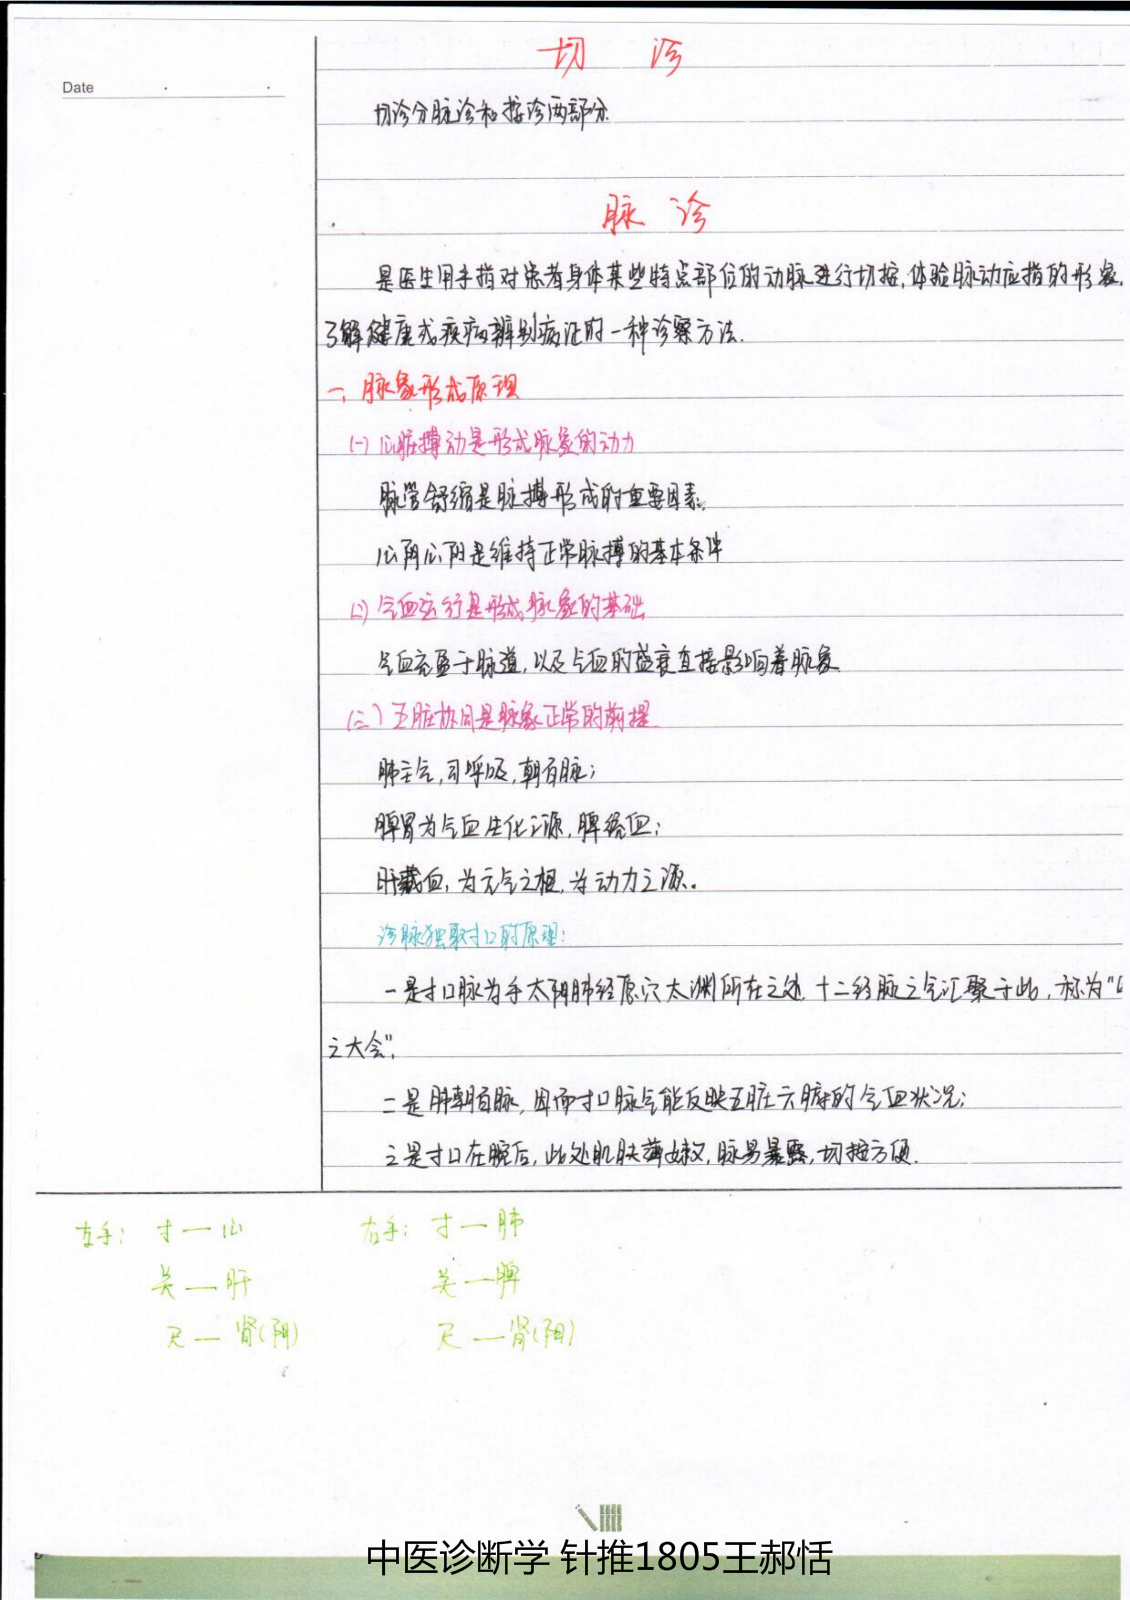 切 诊
Date
切诊分脉诊和按诊两部分.
脉 诊
是医生用手指对患者身体某些特点部位的动脉进行切按,体验脉动应指的形象,
了解健康或疾病辨别病证的一种诊察方法.
一、脉象形成原理
(一)心脏搏动是形成脉象的动力
脉管舒缩是脉搏形成的重要因素.
心阴心阳是维持正常脉搏的基本条件
(二)气血运行是形成脉象的基础
气血充盈于脉道,以及气血的盛衰直接影响着脉象.
(三)五脏协同是脉象正常的前提
肺主气,司呼吸,朝百脉;
脾胃为气血生化之源,脾统血;
肝藏血,为元气之根,为动力之源。
诊脉独取寸口的原理:
一是寸口脉为手太阴肺经原穴太渊所在之处,十二经脉之气汇聚于此,称为“
之大会”;
二是肺朝百脉,因而寸口脉气能反映五脏六腑的气血状况;
三是寸口在腕后,此处肌肤薄嫩,脉易暴露,切按方便.
左手: 寸—心 右手: 寸—肺
关—肝 关—脾
尺—肾(阴) 尺—肾(阳)
中医诊断学 针推1805王郝恬